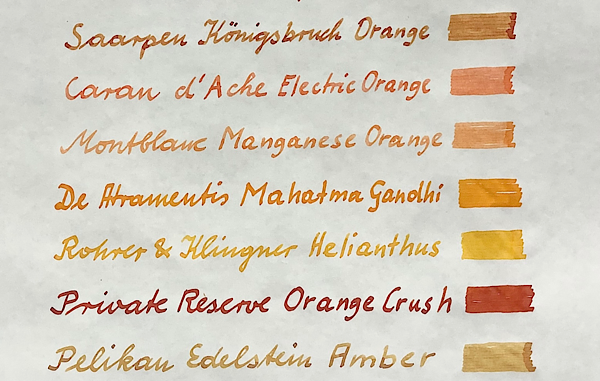 Saarpen Königsbruch Orange
Caran d'Ache Electric Orange
Montblanc Manganese Orange
De Atramentis Mahatma Gandhi
Rohrer & Klingner Helianthus
Private Reserve Orange Crush
Pelikan Edelstein Amber